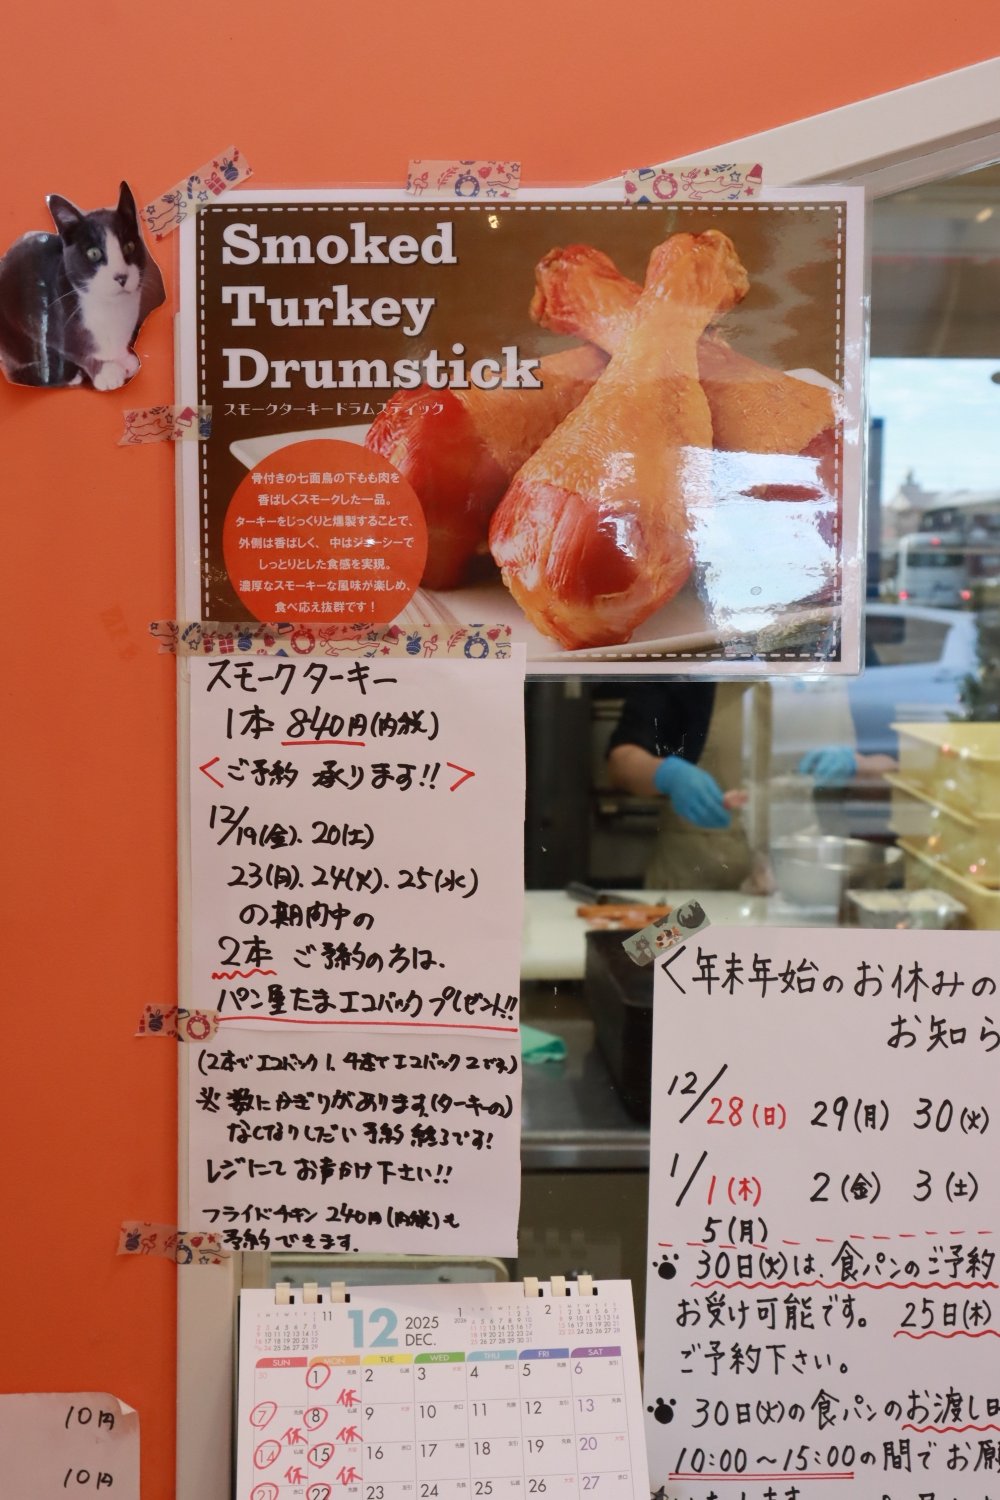 Smoked
Turkey
Drumstick
スモークターキードラムスティック
骨付きの七面鳥の下もも肉を
香ばしくスモークした一品。
ターキーをじっくりと燻製することで、
外側は香ばしく、中はジューシーで
しっとりとした食感を実現。
濃厚なスモーキーな風味が楽しめ、
食べ応え抜群です！
スモークターキー
1本 840円(内税)
<ご予約 承ります!!>
12/19(金)、20(土)
23(月)、24(火)、25(水)
の期間中の
2本 ご予約の方は、
パン屋たまエコバックプレゼント!!
(2本でエコバック1、4本でエコバック2です。)
※数にかぎりがあります。(ターキーの)
なくなりしだい予約終了です!
レジにてお声かけ下さい!!
フライドチキン 240円(内税)も
予約できます。
<年末年始のお休みの
お知ら
12/28(日) 29(月) 30(火)
1/1(木) 2(金) 3(土)
5(月)
30日(火)は、食パンのご予約
お受け可能です。 25日(木)
ご予約下さい。
30日(火)の食パンのお渡し日
10:00～15:00の間でお願
11 12 2025 DEC. 1 2
SUN MON TUE WED THU FRI SAT
30 1 2 3 4 5 6
休
7 8 9 10 11 12 13
休 休
14 15 16 17 18 19 20
休 休
21 22 23 24 25 26 27
10円
10円